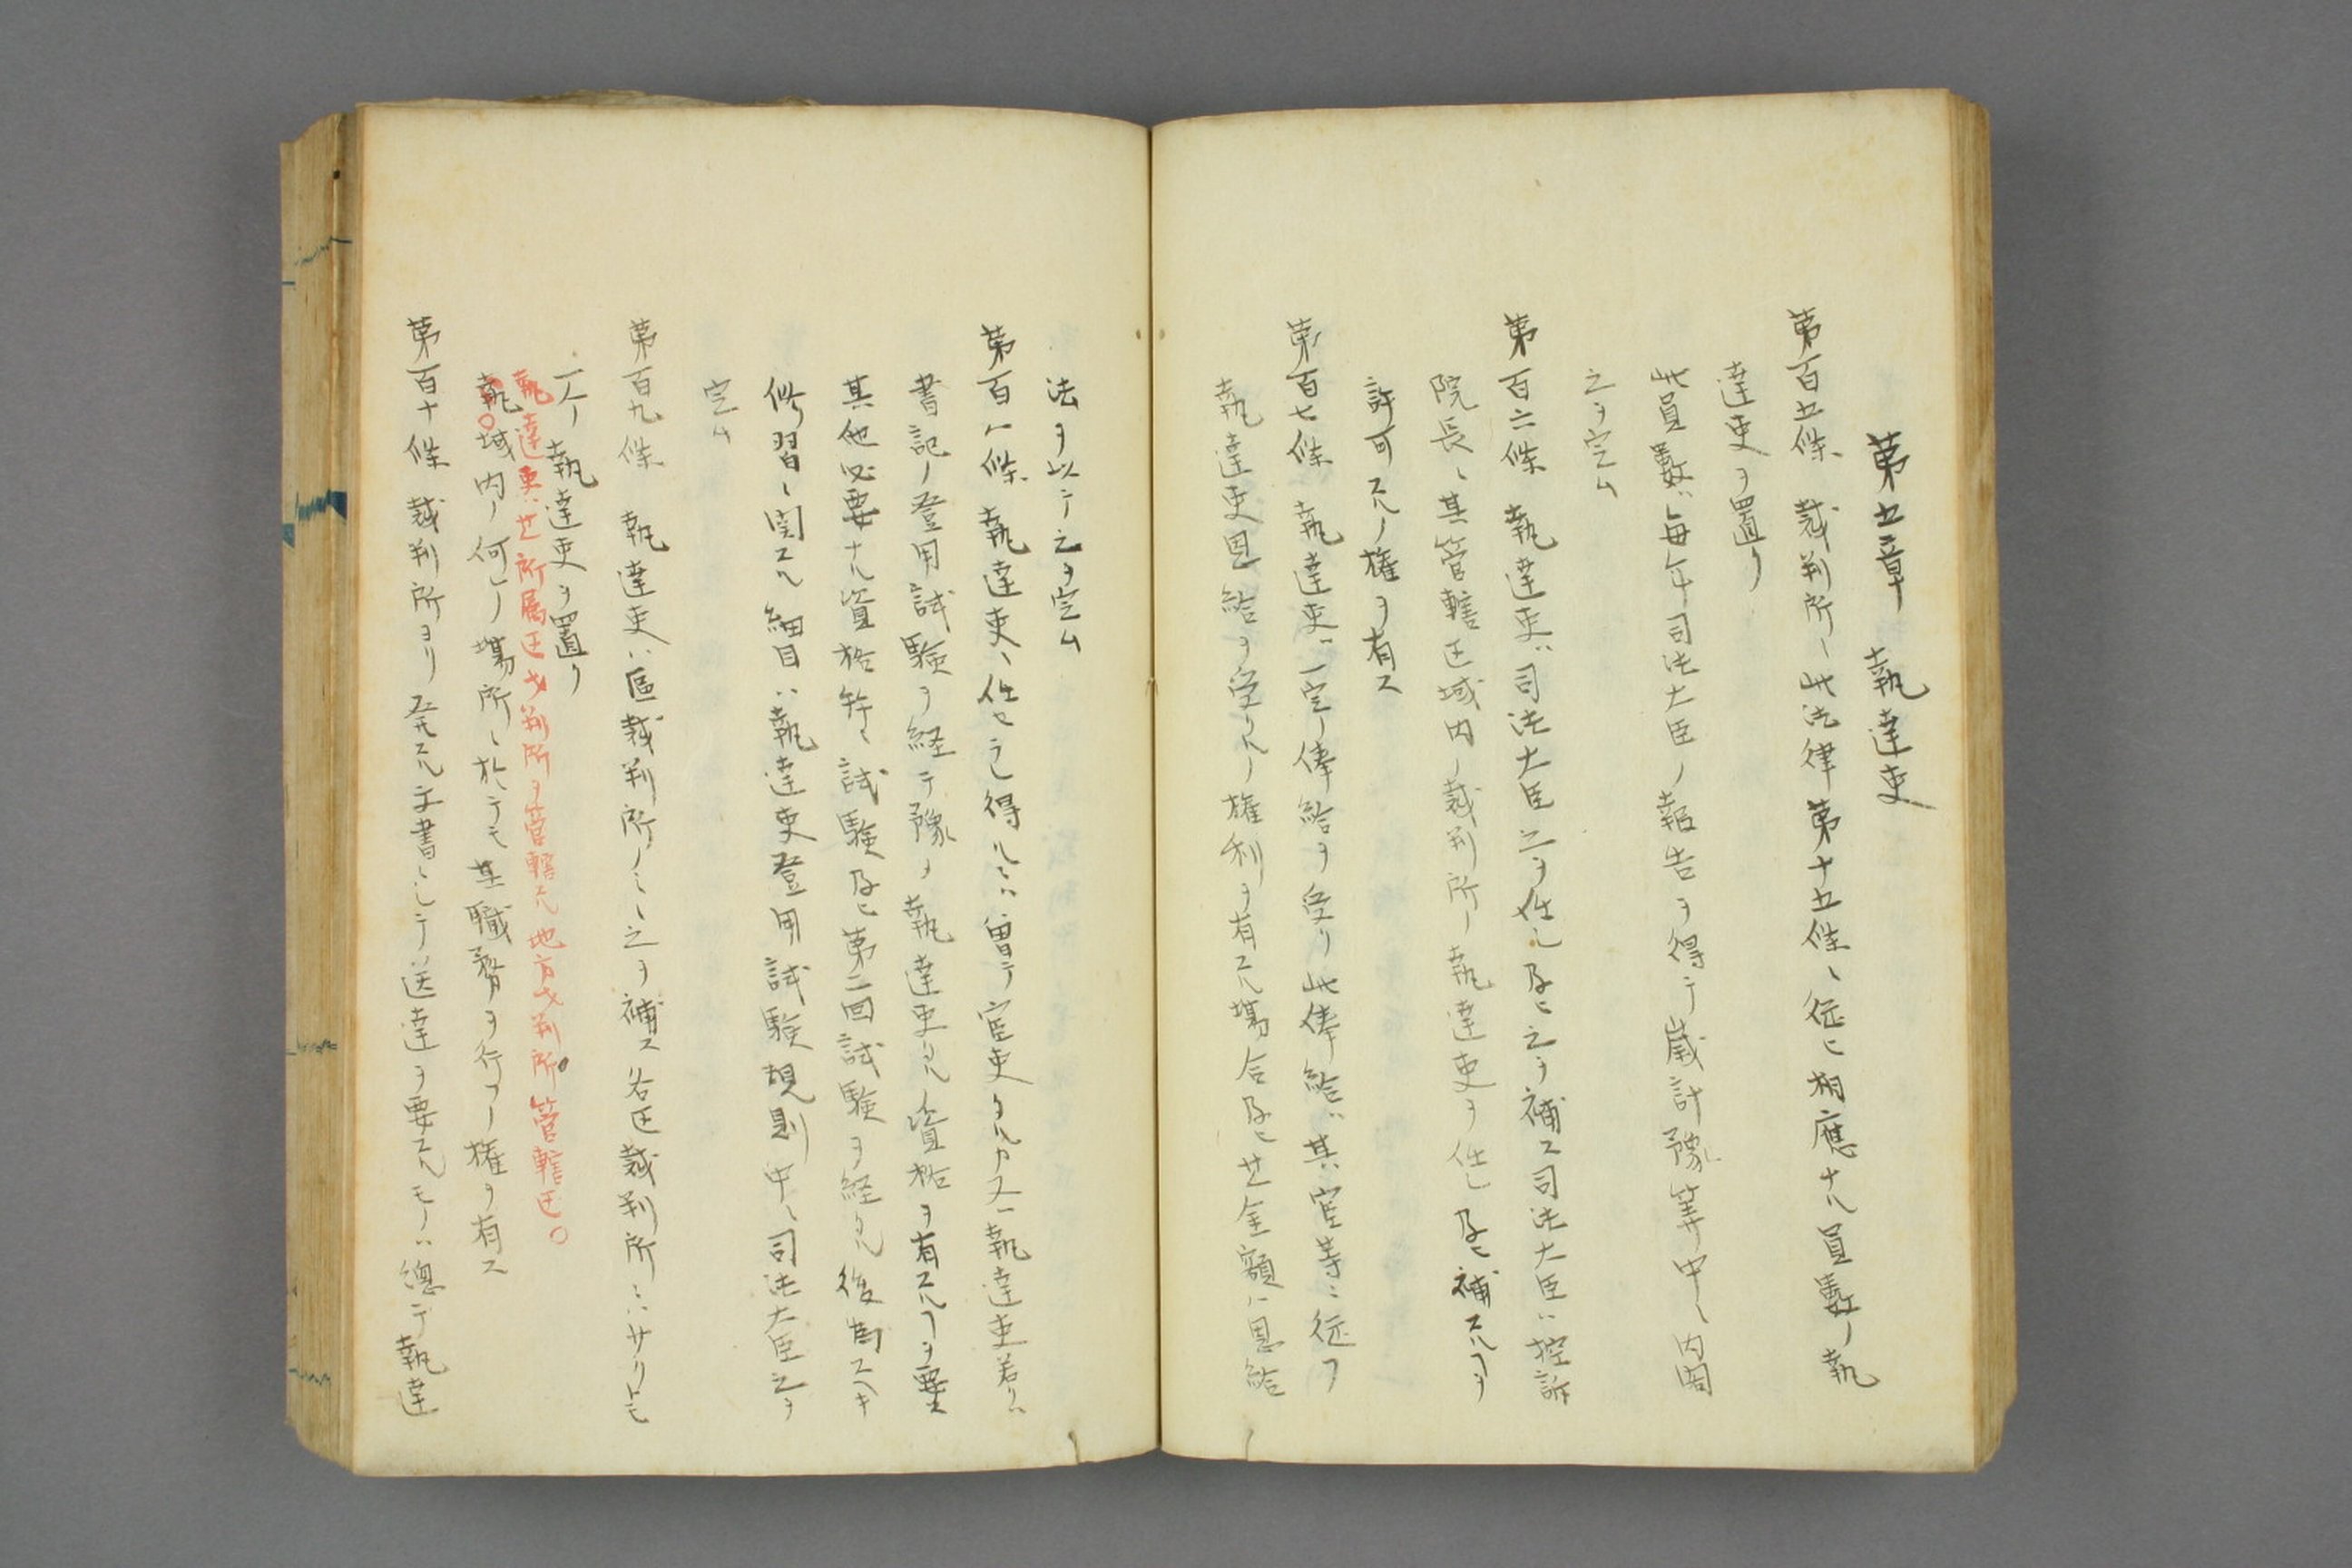 第五章 執達吏
第百五條 裁判所ニ此法律第十五條ニ從ヒ相應ナル員數ノ執
達吏ヲ置ク
此員數ハ毎年司法大臣ノ報告ヲ得テ歳計豫筭中ニ内閣
之ヲ定ム
第百六條 執達吏ハ司法大臣之ヲ任シ及ヒ之ヲ補ス司法大臣ハ控訴
院長ニ其管轄区域内ノ裁判所ノ執達吏ヲ任シ及ヒ補スルヿヲ
許可スルノ權ヲ有ス
第百七條 執達吏ハ一定ノ俸給ヲ受ク此俸給ハ其官等ニ從フ
執達吏恩給ヲ受クルノ權利ヲ有スル塲合及ヒ其金額ハ恩給
法ヲ以テ之ヲ定ム
第百八條 執達吏ニ任セラレ得ルニハ曽テ官吏タルカ又ハ執達吏若クハ
書記ノ登用試験ヲ経テ豫メ執達吏タルノ資格ヲ有スルヿヲ要ス
其他必要ナル資格幷ニ試験及ヒ第二回試験ヲ経タル後為スヘキ
修習ニ関スル細目ハ執達吏登用試験規則中ニ司法大臣之ヲ
定ム
第百九條 執達吏ハ區裁判所ノミニ之ヲ補ス各区裁判所ニハ少クトモ
一人ノ執達吏ヲ置ク
執達吏ハ其所属区才判所ヲ管轄スル地方才判所ノ管轄区
域内ノ何レノ塲所ニ於テモ其職務ヲ行フノ權ヲ有ス
第百十條 裁判所ヨリ発スル文書ニシテ送達ヲ要スルモノハ總テ執達